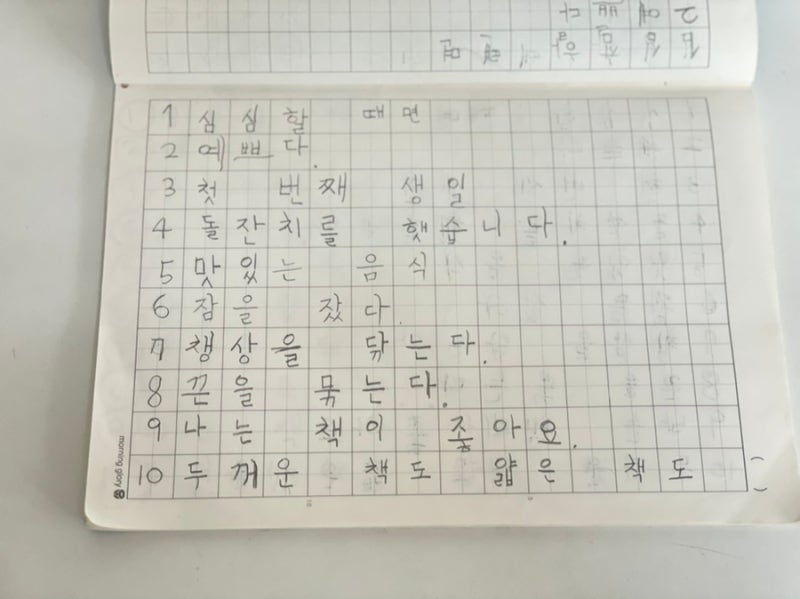 1 심심할 때면
2 예쁘다.
3 첫 번째 생일
4 돌잔치를 햇습니다.
5 맛있는 음식
6 잠을 잤다.
7 챙상을 닦는다.
8 끈을 묶는다.
9 나는 책이 좋아요.
10 두꺼운 책도 얇은 책도
morning glory